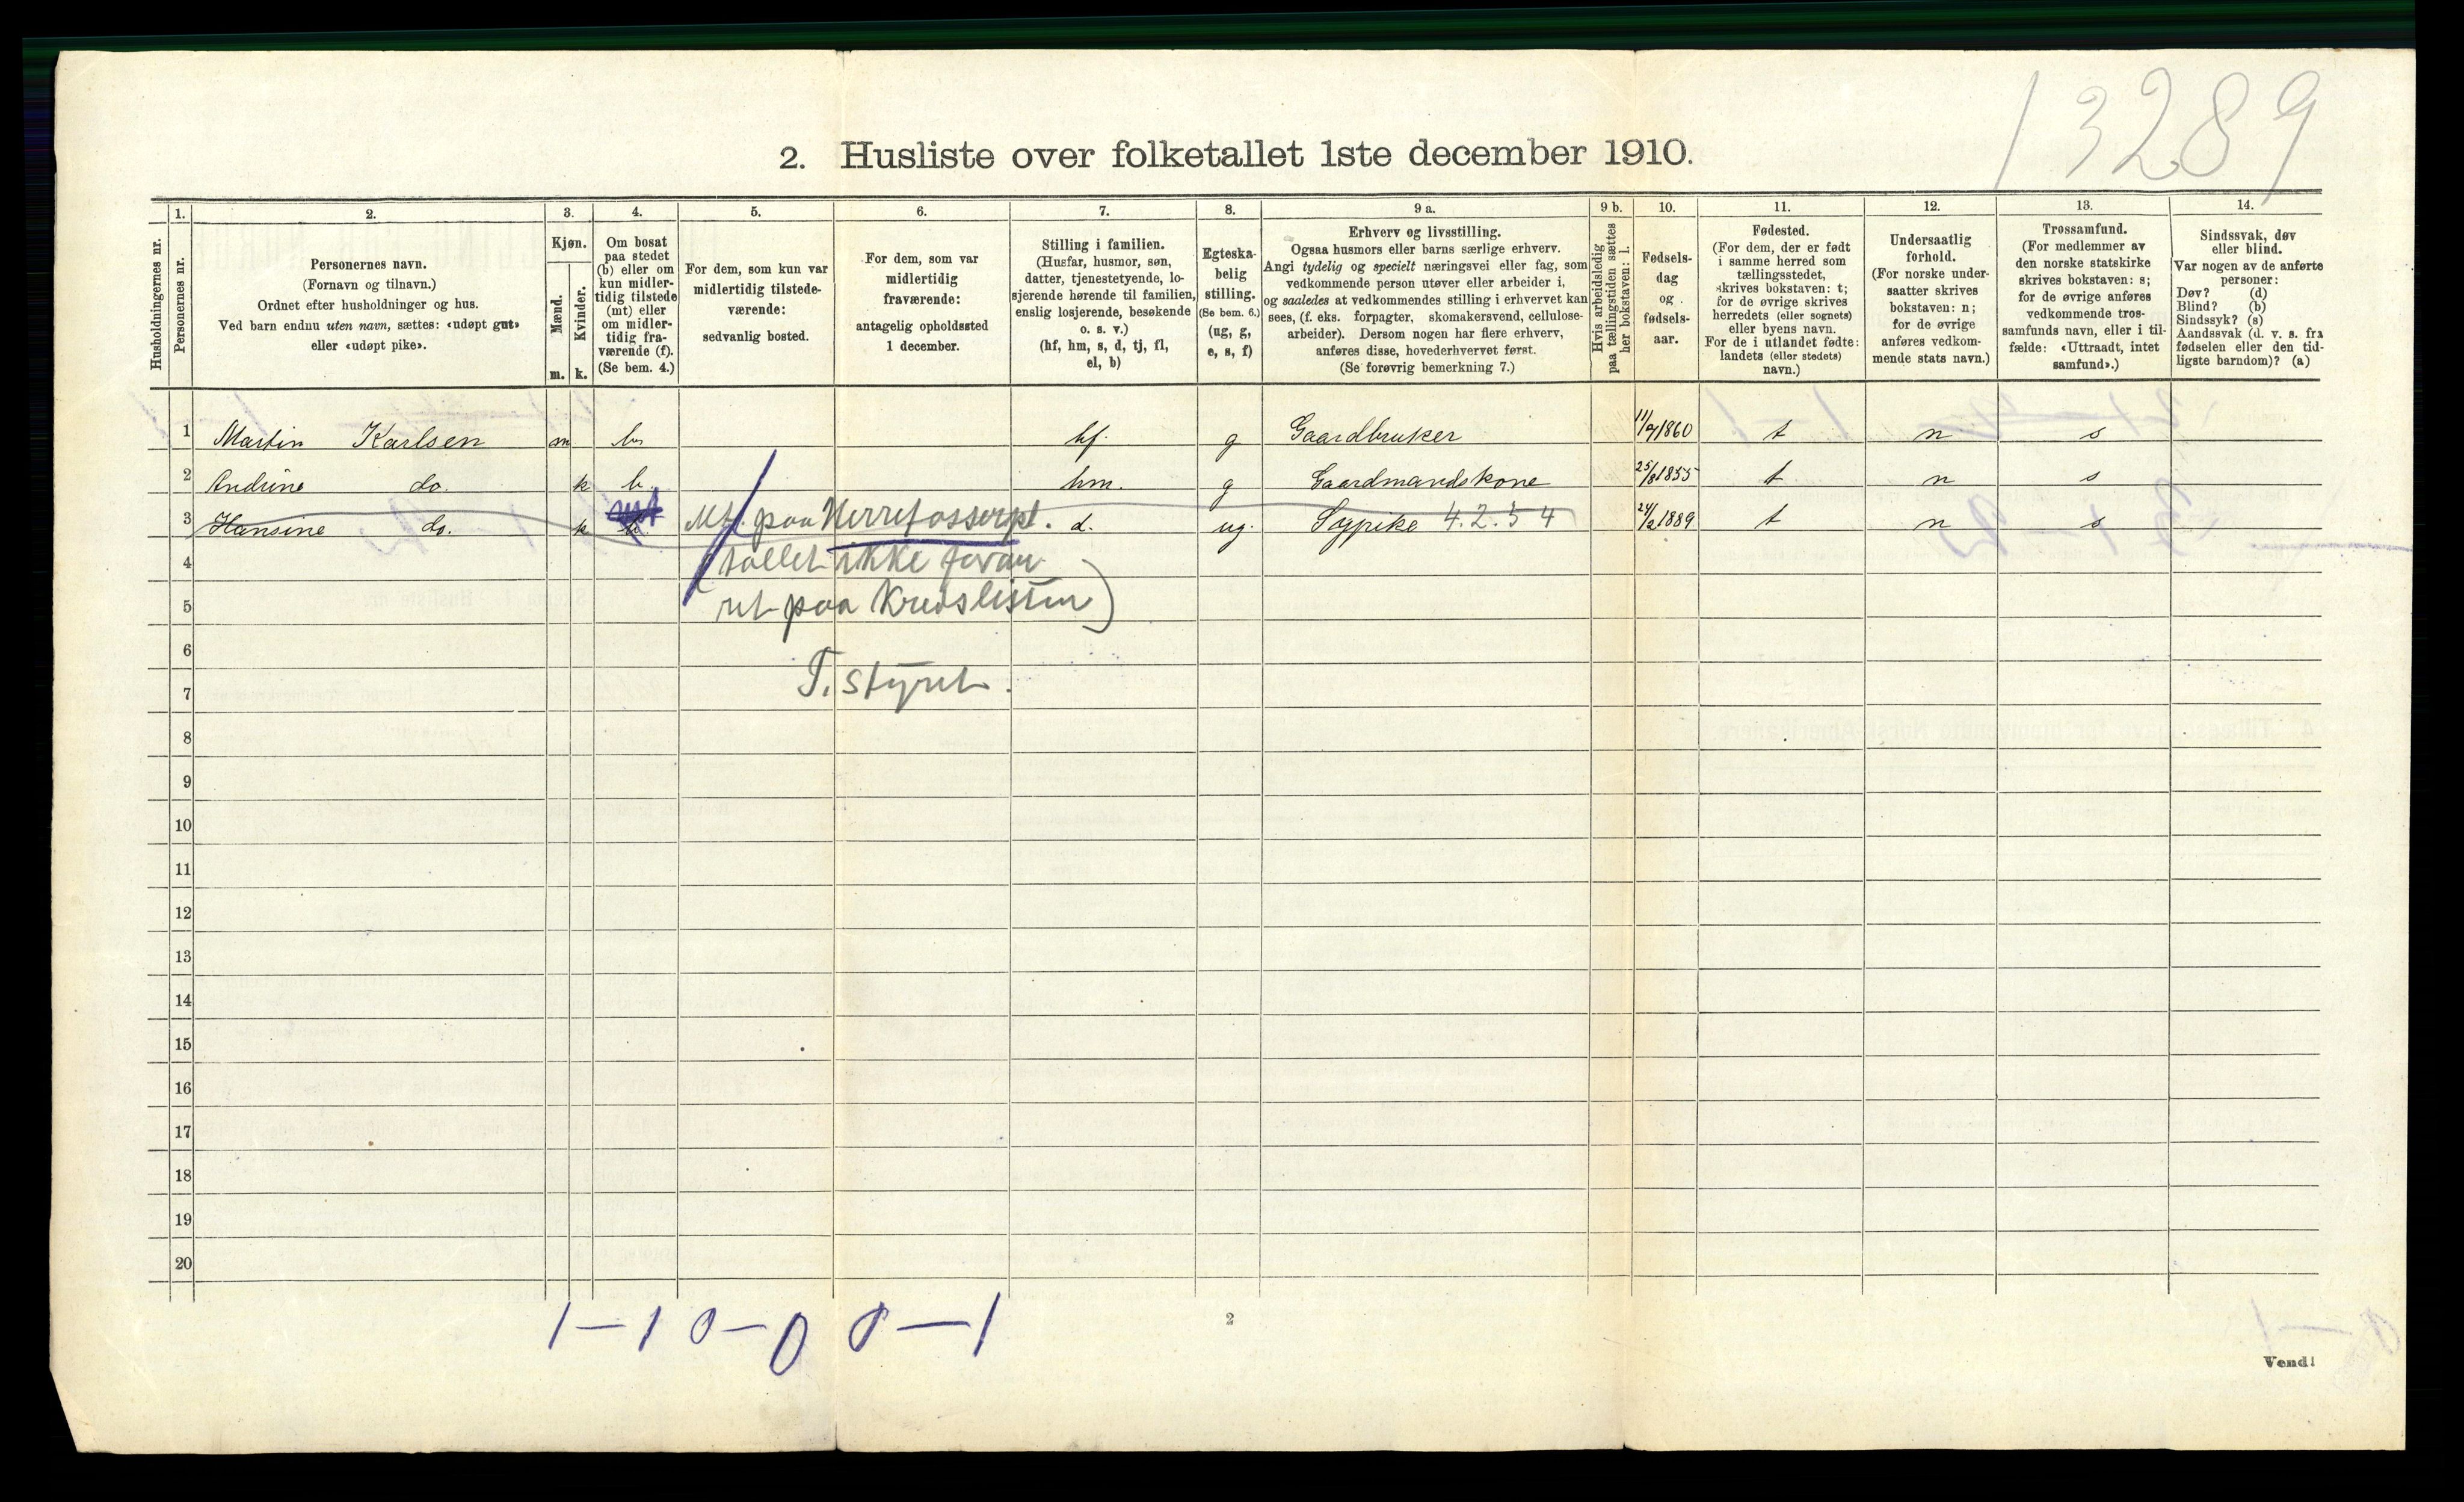 13289
2. Husliste over folketallet 1ste december 1910.
Husholdningernes nr.
1.
Personernes nr.
2.
Personernes navn.
(Fornavn og tilnavn.)
Ordnet efter husholdninger og hus.
Ved barn endnu uten navn, sættes: «udøpt gut»
eller «udøpt pike».
3.
Kjøn.
Mænd.
Kvinder.
m. k.
4.
Om bosat
paa stedet
(b) eller om
kun midler-
tidig tilstede
(mt) eller
om midler-
tidig fra-
værende (f).
(Se bem. 4.)
5.
For dem, som kun var
midlertidig tilstede-
værende:
sedvanlig bosted.
6.
For dem, som var
midlertidig
fraværende:
antagelig opholdssted
1 december.
7.
Stilling i familien.
(Husfar, husmor, søn,
datter, tjenestetyende, lo-
sjerende hørende til familien,
enslig losjerende, besøkende
o. s. v.)
(hf, hm, s, d, tj, fl,
el, b)
8.
Egteska-
belig
stilling.
(Se bem. 6.)
(ug, g,
e, s, f)
9 a.
Erhverv og livsstilling.
Ogsaa husmors eller barns særlige erhverv.
Angi tydelig og specielt næringsvei eller fag, som
vedkommende person utøver eller arbeider i,
og saaledes at vedkommendes stilling i erhvervet kan
sees, (f. eks. forpagter, skomakersvend, cellulose-
arbeider). Dersom nogen har flere erhverv,
anføres disse, hovederhvervet først.
(Se forøvrig bemerkning 7.)
9 b.
Hvis arbeidsledig
paa tællingstiden sættes
her bokstaven: l.
10.
Fødsels-
dag
og
fødsels-
aar.
11.
Fødested.
(For dem, der er født
i samme herred som
tællingsstedet,
skrives bokstaven: t;
for de øvrige skrives
herredets (eller sognets)
eller byens navn.
For de i utlandet fødte:
landets (eller stedets)
navn.)
12.
Undersaatlig
forhold.
(For norske under-
saatter skrives
bokstaven: n;
for de øvrige
anføres vedkom-
mende stats navn.)
13.
Trossamfund.
(For medlemmer av
den norske statskirke
skrives bokstaven: s;
for de øvrige anføres
vedkommende tros-
samfunds navn, eller i til-
fælde: «Uttraadt, intet
samfund».)
14.
Sindssvak, døv
eller blind.
Var nogen av de anførte
personer:
Døv? (d)
Blind? (b)
Sindssyk? (s)
Aandssvak (d. v. s. fra
fødselen eller den tid-
ligste barndom)? (a)
1 Martin Karlsen m b hf. g Gaardbruker 11/7 1860 t n s
2 Andrine do. k b hm. g Gaardmandskone 25/8 1855 t n s
3 Hansine do. k mt b Mt. paa d. ug. Sypike 4.2.54 24/2 1889 t n s
4 (tallet ikke foran-
5 ret paa Kredslisten)
6
7 T. styret.
8
9
10
11
12
13
14
15
16
17
18
19
20
1—1 0—0 0—1
2
Vend!